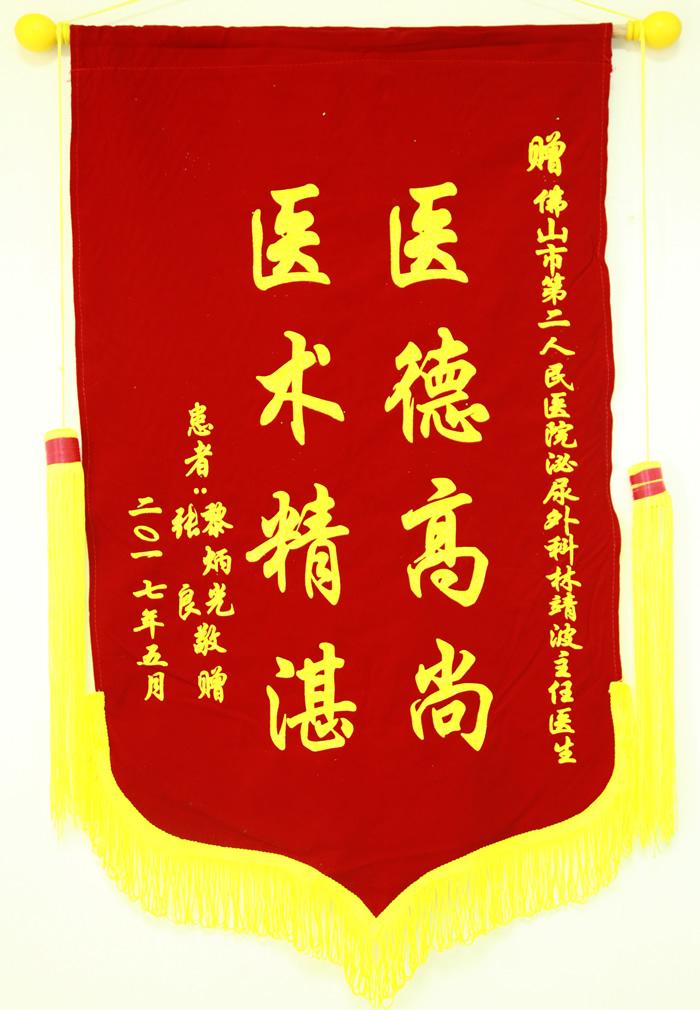 赠佛山市第二人民医院泌尿外科林靖波主任医生
医德高尚
医术精湛
患者：黎炳光敬赠
张良
二〇一七年五月